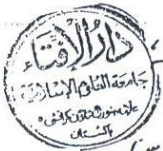 دار الافتاء
جامعة العلوم الاسلامية
علامہ بنوری ٹاؤن کراچی
پاکستان